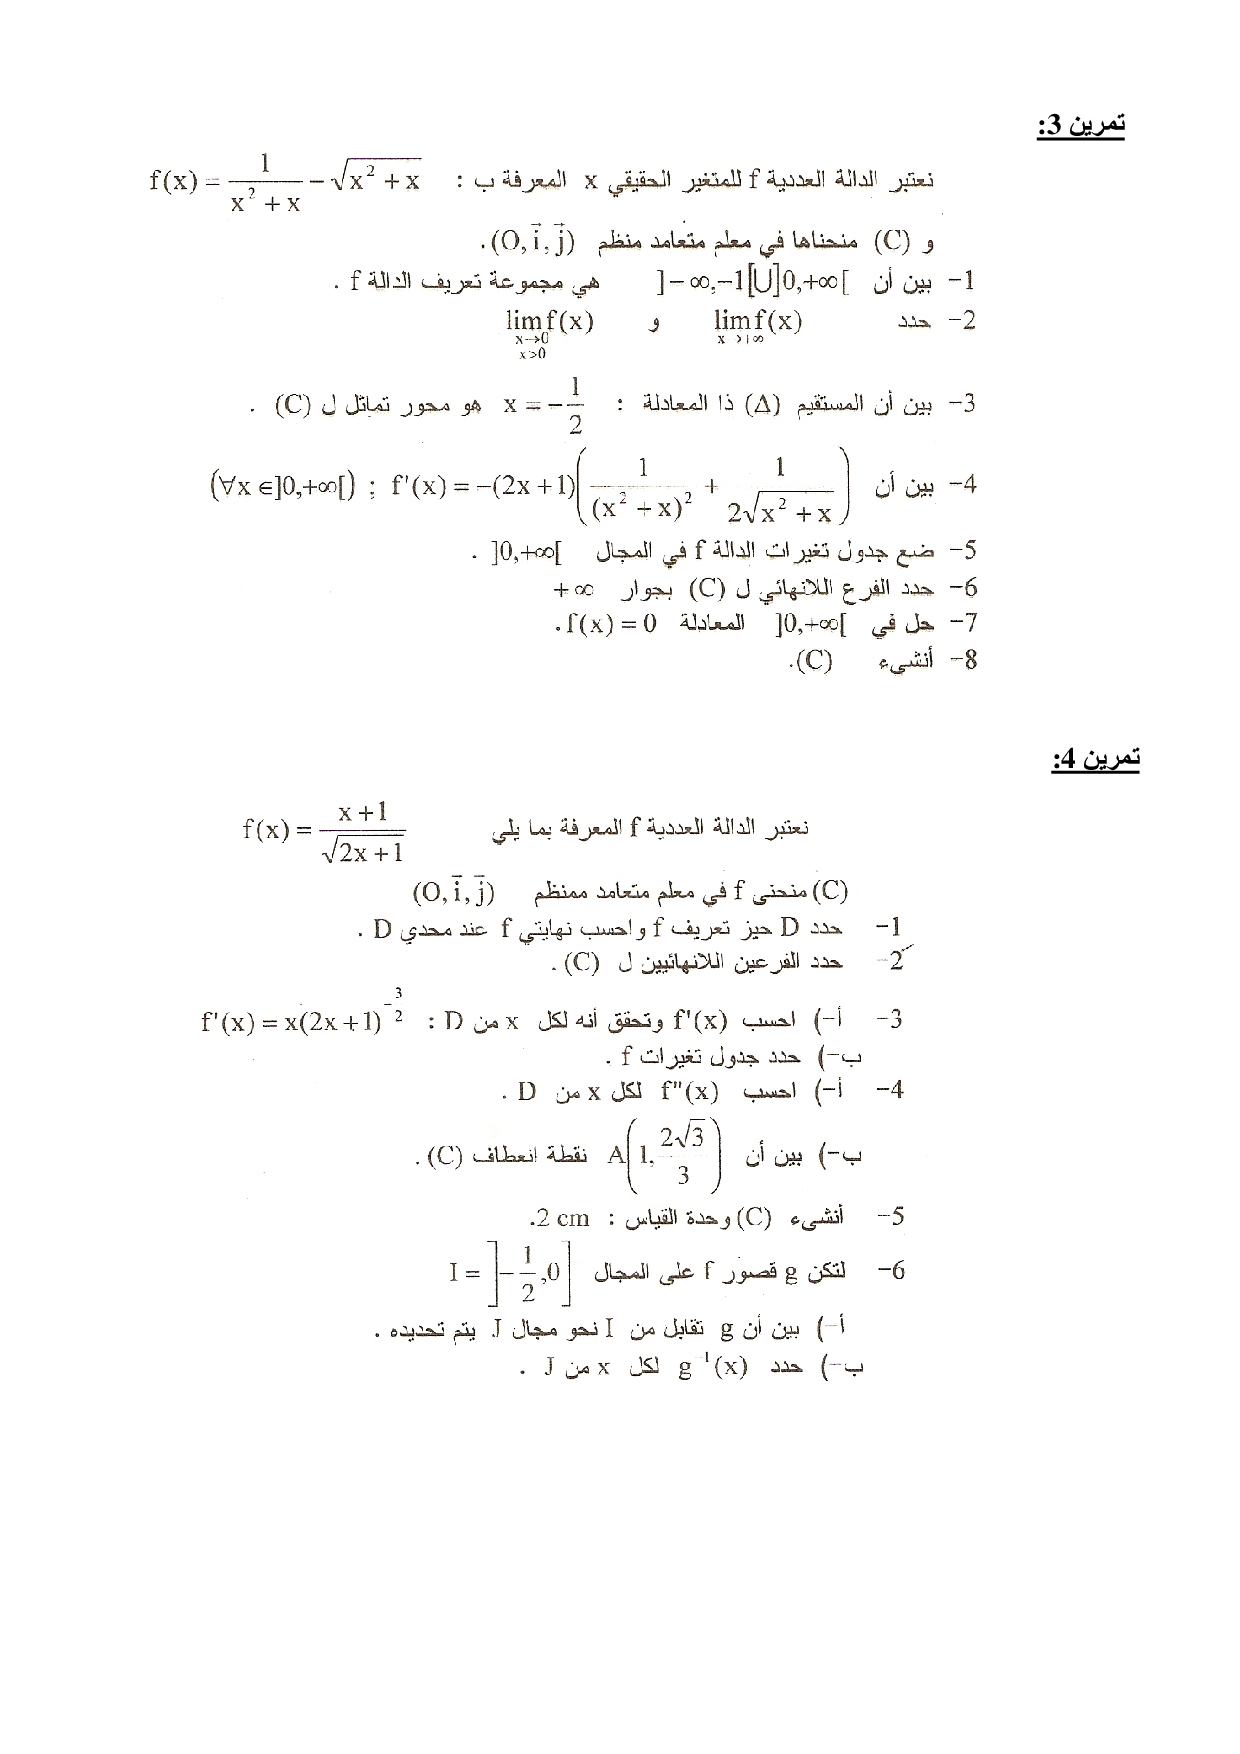 تمرين 3:
نعتبر الدالة العددية f للمتغير الحقيقي x المعرفة ب : f(x) = \frac{1}{x^2 + x} - \sqrt{x^2 + x}
و (C) منحناها في معلم متعامد منظم (O, \vec{i}, \vec{j}).
1- بين أن ]-∞,-1[∪]0,+∞[ هي مجموعة تعريف الدالة f .
2- حدد \lim_{x→+∞} f(x) و \lim_{x→0, x>0} f(x)
3- بين أن المستقيم (Δ) ذا المعادلة : x = -\frac{1}{2} هو محور تماثل ل (C) .
4- بين أن f'(x) = -(2x+1)\left(\frac{1}{(x^2 + x)^2} + \frac{1}{2\sqrt{x^2 + x}}\right) ; (∀x ∈]0,+∞[)
5- ضع جدول تغيرات الدالة f في المجال ]0,+∞[ .
6- حدد الفرع اللانهائي ل (C) بجوار +∞
7- حل في ]0,+∞[ المعادلة f(x) = 0.
8- أنشىء (C).
تمرين 4:
نعتبر الدالة العددية f المعرفة بما يلي f(x) = \frac{x+1}{\sqrt{2x+1}}
(C) منحنى f في معلم متعامد ممنظم (O, \vec{i}, \vec{j})
1- حدد D حيز تعريف f واحسب نهايتي f عند محدي D .
2- حدد الفرعين اللانهائيين ل (C) .
3- أ-) احسب f'(x) وتحقق أنه لكل x من D : f'(x) = x(2x+1)^{-\frac{3}{2}}
ب-) حدد جدول تغيرات f .
4- أ-) احسب f"(x) لكل x من D .
ب-) بين أن A\left(1, \frac{2\sqrt{3}}{3}\right) نقطة انعطاف (C) .
5- أنشىء (C) وحدة القياس : 2 cm.
6- لتكن g قصور f على المجال I = \left]-\frac{1}{2},0\right]
أ-) بين أن g تقابل من I نحو مجال J يتم تحديده .
ب-) حدد g^{-1}(x) لكل x من J .